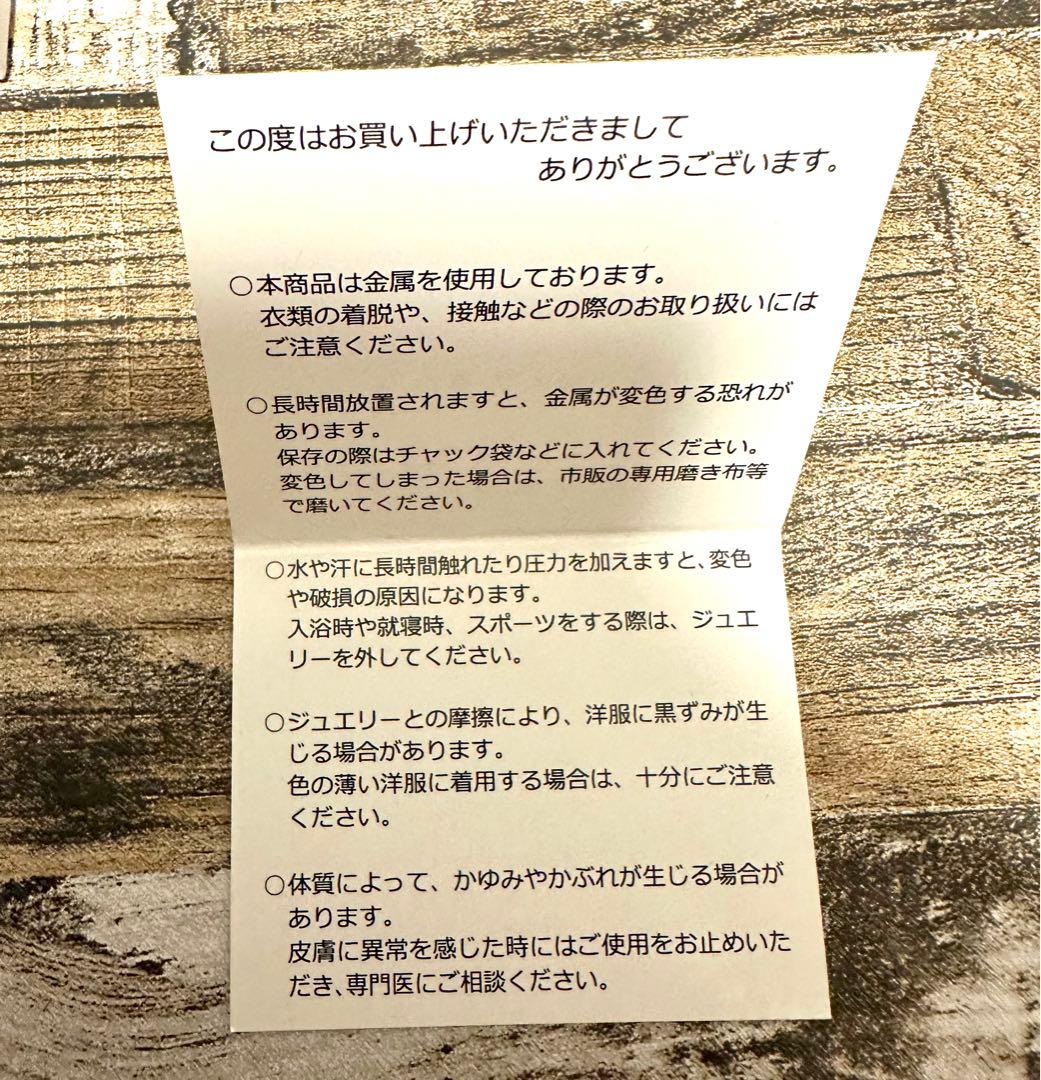 この度はお買い上げいただきまして
ありがとうございます。
○本商品は金属を使用しております。
衣類の着脱や、接触などの際のお取り扱いには
ご注意ください。
○長時間放置されますと、金属が変色する恐れが
あります。
保存の際はチャック袋などに入れてください。
変色してしまった場合は、市販の専用磨き布等
で磨いてください。
○水や汗に長時間触れたり圧力を加えますと、変色
や破損の原因になります。
入浴時や就寝時、スポーツをする際は、ジュエ
リーを外してください。
○ジュエリーとの摩擦により、洋服に黒ずみが生
じる場合があります。
色の薄い洋服に着用する場合は、十分にご注意
ください。
○体質によって、かゆみやかぶれが生じる場合が
あります。
皮膚に異常を感じた時にはご使用をお止めいた
だき、専門医にご相談ください。